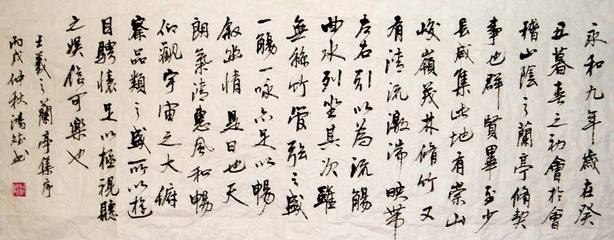 永和九年歲在癸
丑暮春之初會於會
稽山陰之蘭亭脩禊
事也群賢畢至少
長咸集此地有崇山
峻嶺茂林脩竹又
有清流激湍映帶
左右引以為流觴
曲水列坐其次雖
無絲竹管弦之盛
一觴一咏亦足以暢
敘幽情是日也天
朗氣清惠風和暢
仰觀宇宙之大俯
察品類之盛所以遊
目騁懷足以極視聽
之娛信可樂也
王羲之蘭亭集序
丙戌仲秋